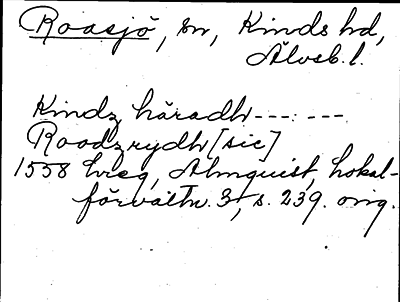 Roasjö, sn, Kinds hd,
Älvsb. l.
Kindz häradh --- : ---
Roodzrydh [sic]
1558 Lreg, Almquist, Lokal-
förvaltn. 3, s. 239. orig.